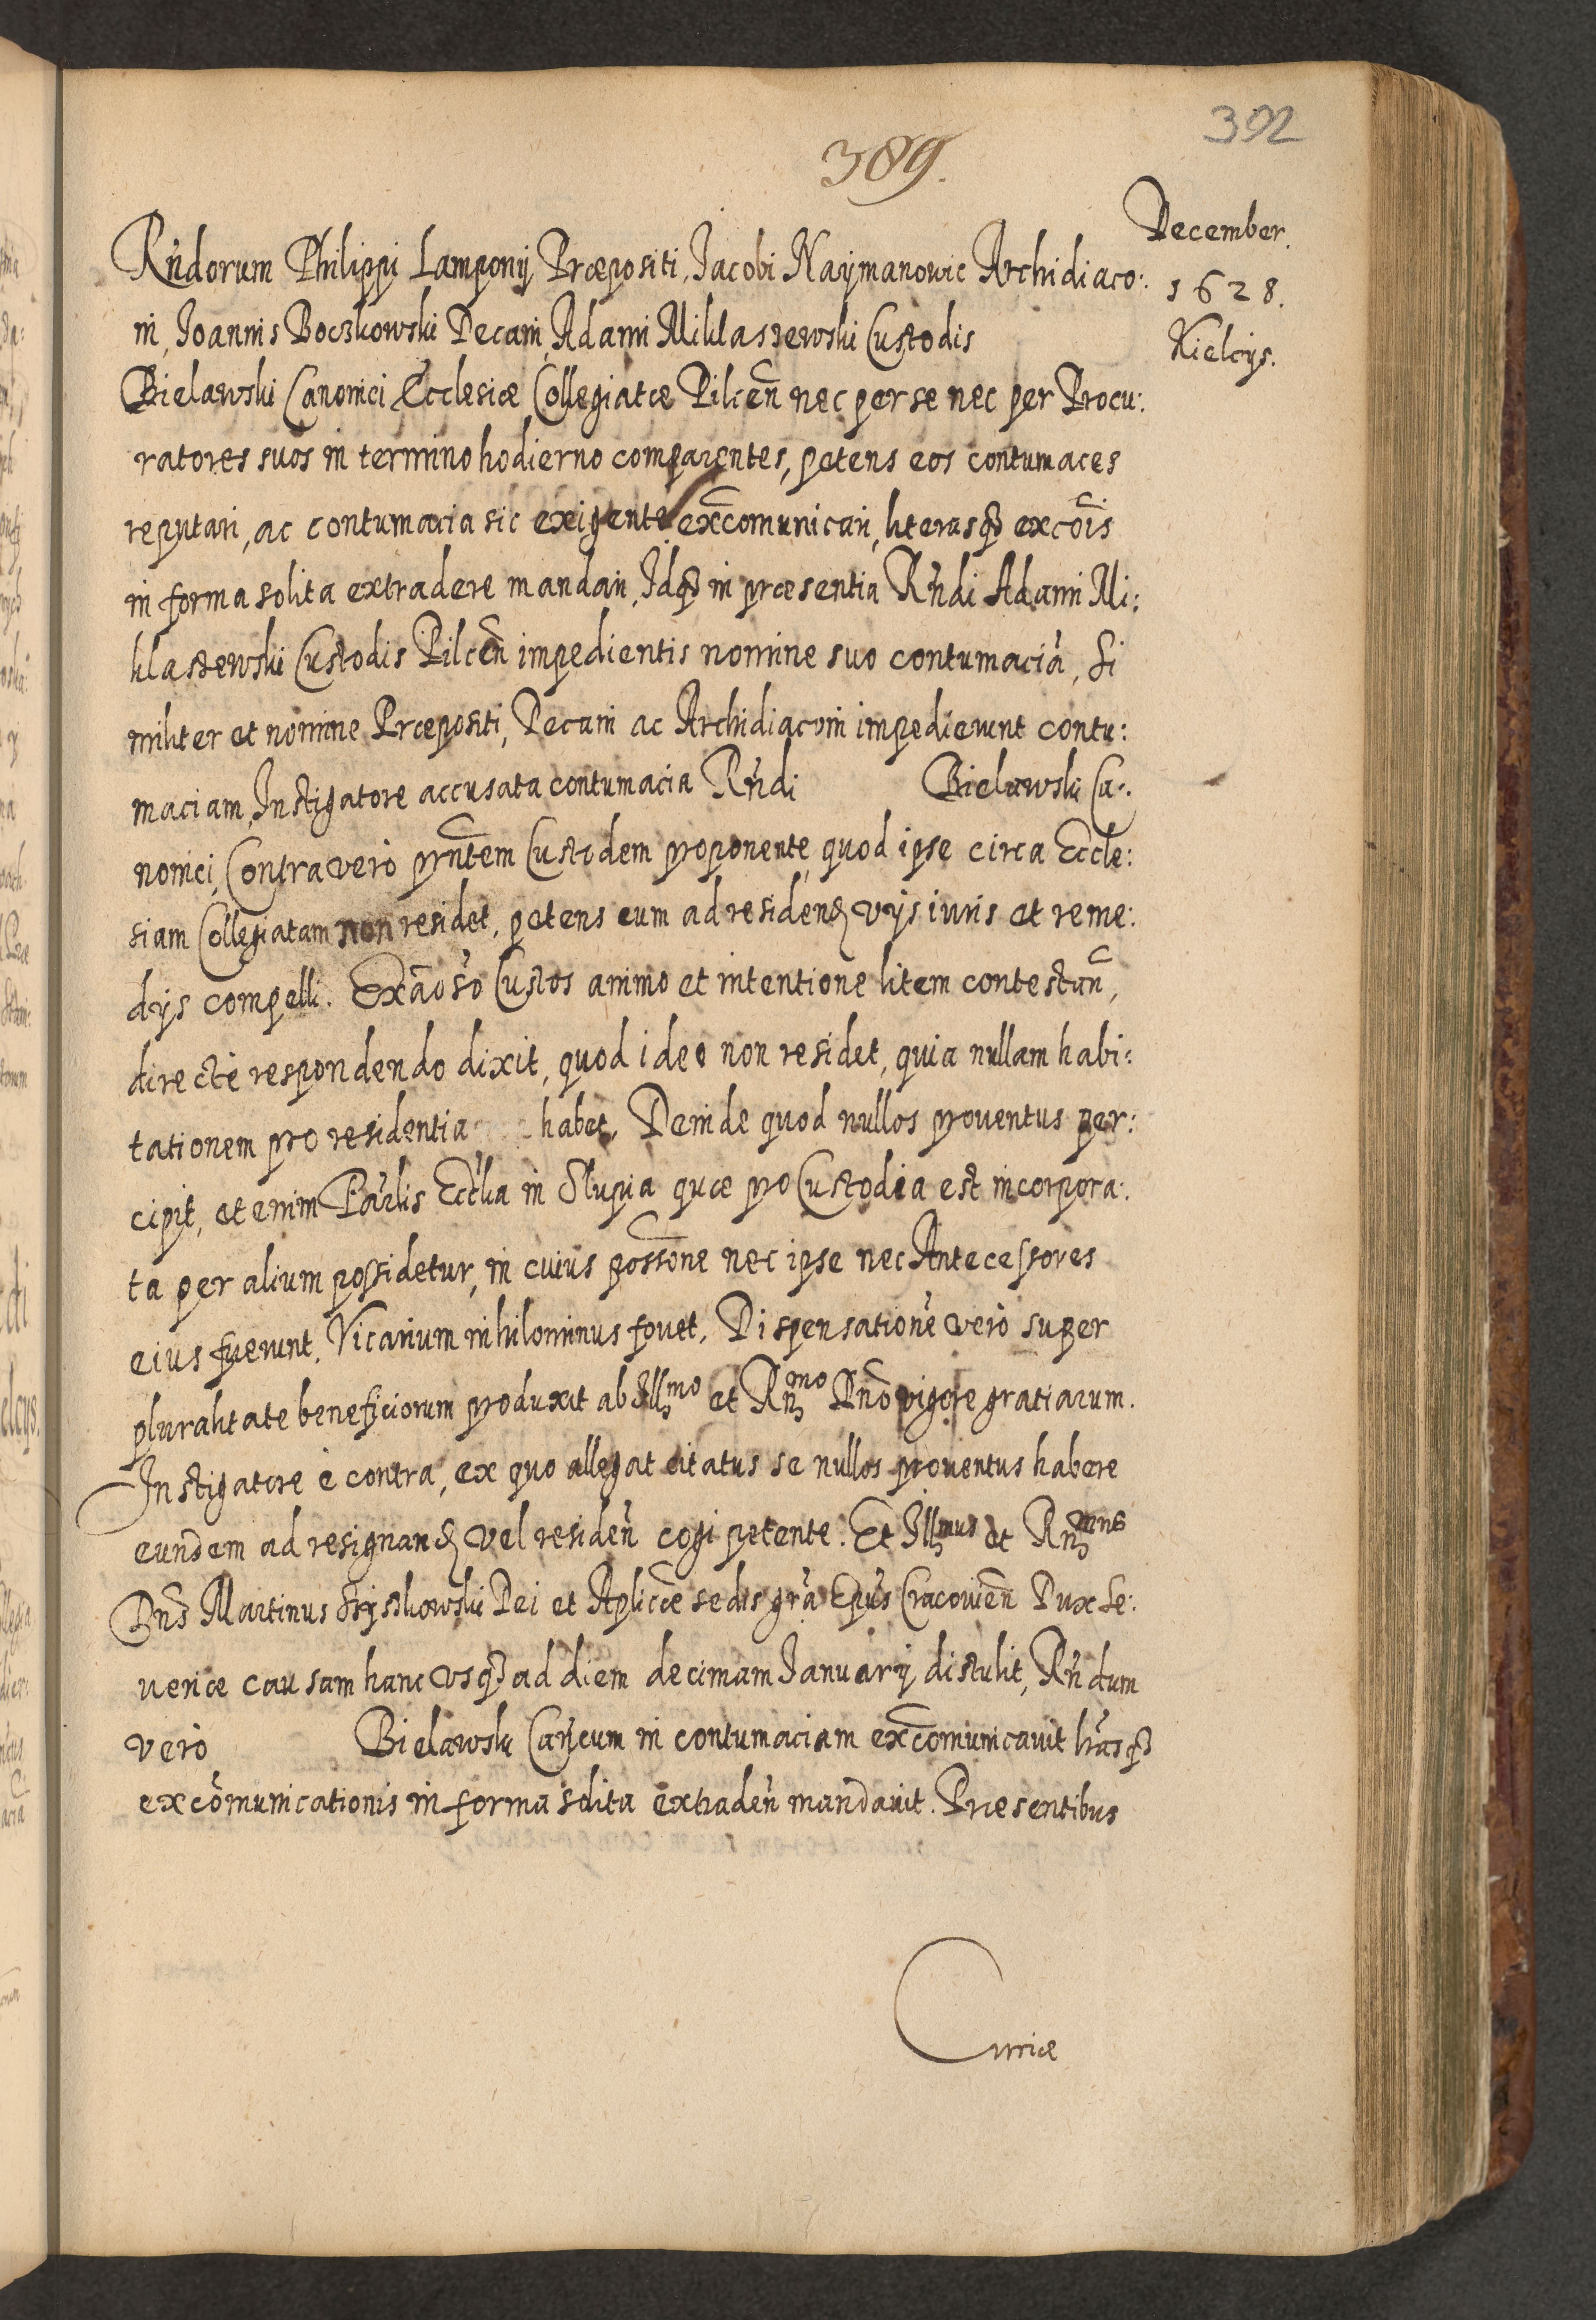 392
389.
December.
1628.
Kielcys.
Rndorum Philippi Lamponij Præpositi, Jacobi Naymanowic Archidiaco:
ni, Joannis Boczkowski Decani, Adami Miklaszewski Custodis
Bielawski Canonici Ecclesiæ Collegiatæ Pilcen̄ nec per se nec per Procu:
ratores suos in termino hodierno comparentes, petens eos contumaces
reputari, ac contumacia sic exigente excomunicari, literasq₃ excōis
in forma solita extradere mandari. Idq₃ in præsentia Rndi Adami Mi:
klaszewski Custodis Pilcen̄ impedientis nomine suo contumaciā, Si
militer et nomine Præpositi, Decani ac Archidiaconi impedierunt contu:
maciam, Instigatore accusata contumacia Rndi Bielawski Ca:
nonici, Contra vero pn̄tem Custodem proponente, quod ipse circa Eccle:
siam Collegiatam non residet, petens eum ad residen̄ vijs iuris et reme:
dijs compelli. Ex ao̅so Custos animo et intentione litem contestan̄,
directè respondendo dixit, quod ideo non residet, quia nullam habi:
tationem pro residentia habet. Deinde quod nullos prouentus per:
cipit, et enim Parlis Eccl̄ia in Slupia quæ pro Custodia est incorpora:
ta per alium possidetur, in cuius possōne nec ipse nec Antecessores
eius fuerunt. Vicarium nihilominus fouet. Dispensationē vero super
pluralitate beneficiorum produxit ab Illmo et Rnmo Dnō vigore gratiarum.
Instigatore è contra, ex quo allegat citatus se nullos prouentus habere
eundem ad resignan̄ vel residen̄ cogi petente. Et Illmus et Rnmus
Dnō̄s Martinus Szyszkowski Dei et Aplicæ sedis gr̄a Epūs Cracouien̄ Dux Se:
ueriæ causam hanc vsq₃ ad diem decimam Januarij distulit, Rndum
vero Bielawski Can̄cum in contumaciam excomunicauit l̄rasq₃
excōmunicationis in forma solita extraden̄ mandauit. Præsentibus
Curiæ